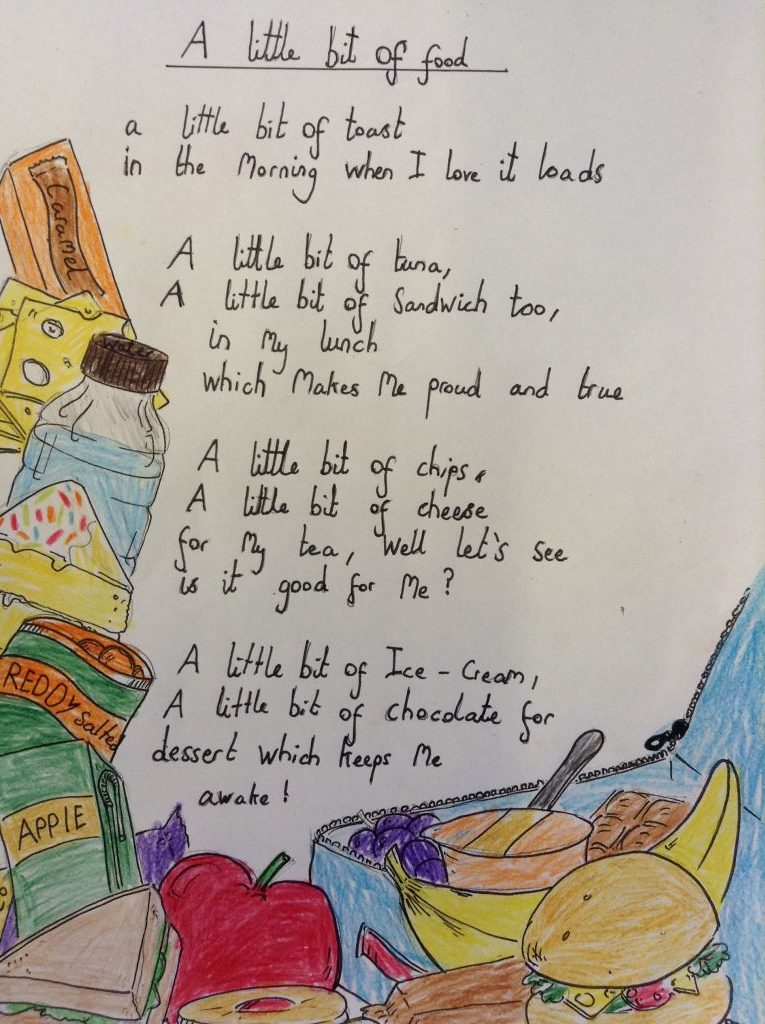 A little bit of food
a little bit of toast
in the Morning when I love it loads
A little bit of tuna,
A little bit of Sandwich too,
in My lunch
which Makes Me proud and true
A little bit of chips,
A little bit of cheese
for My tea, Well let's see
is it good for Me?
A little bit of Ice-Cream,
A little bit of chocolate for
dessert which keeps Me
awake!
Caramel
water
REDDY Salted
APPLE